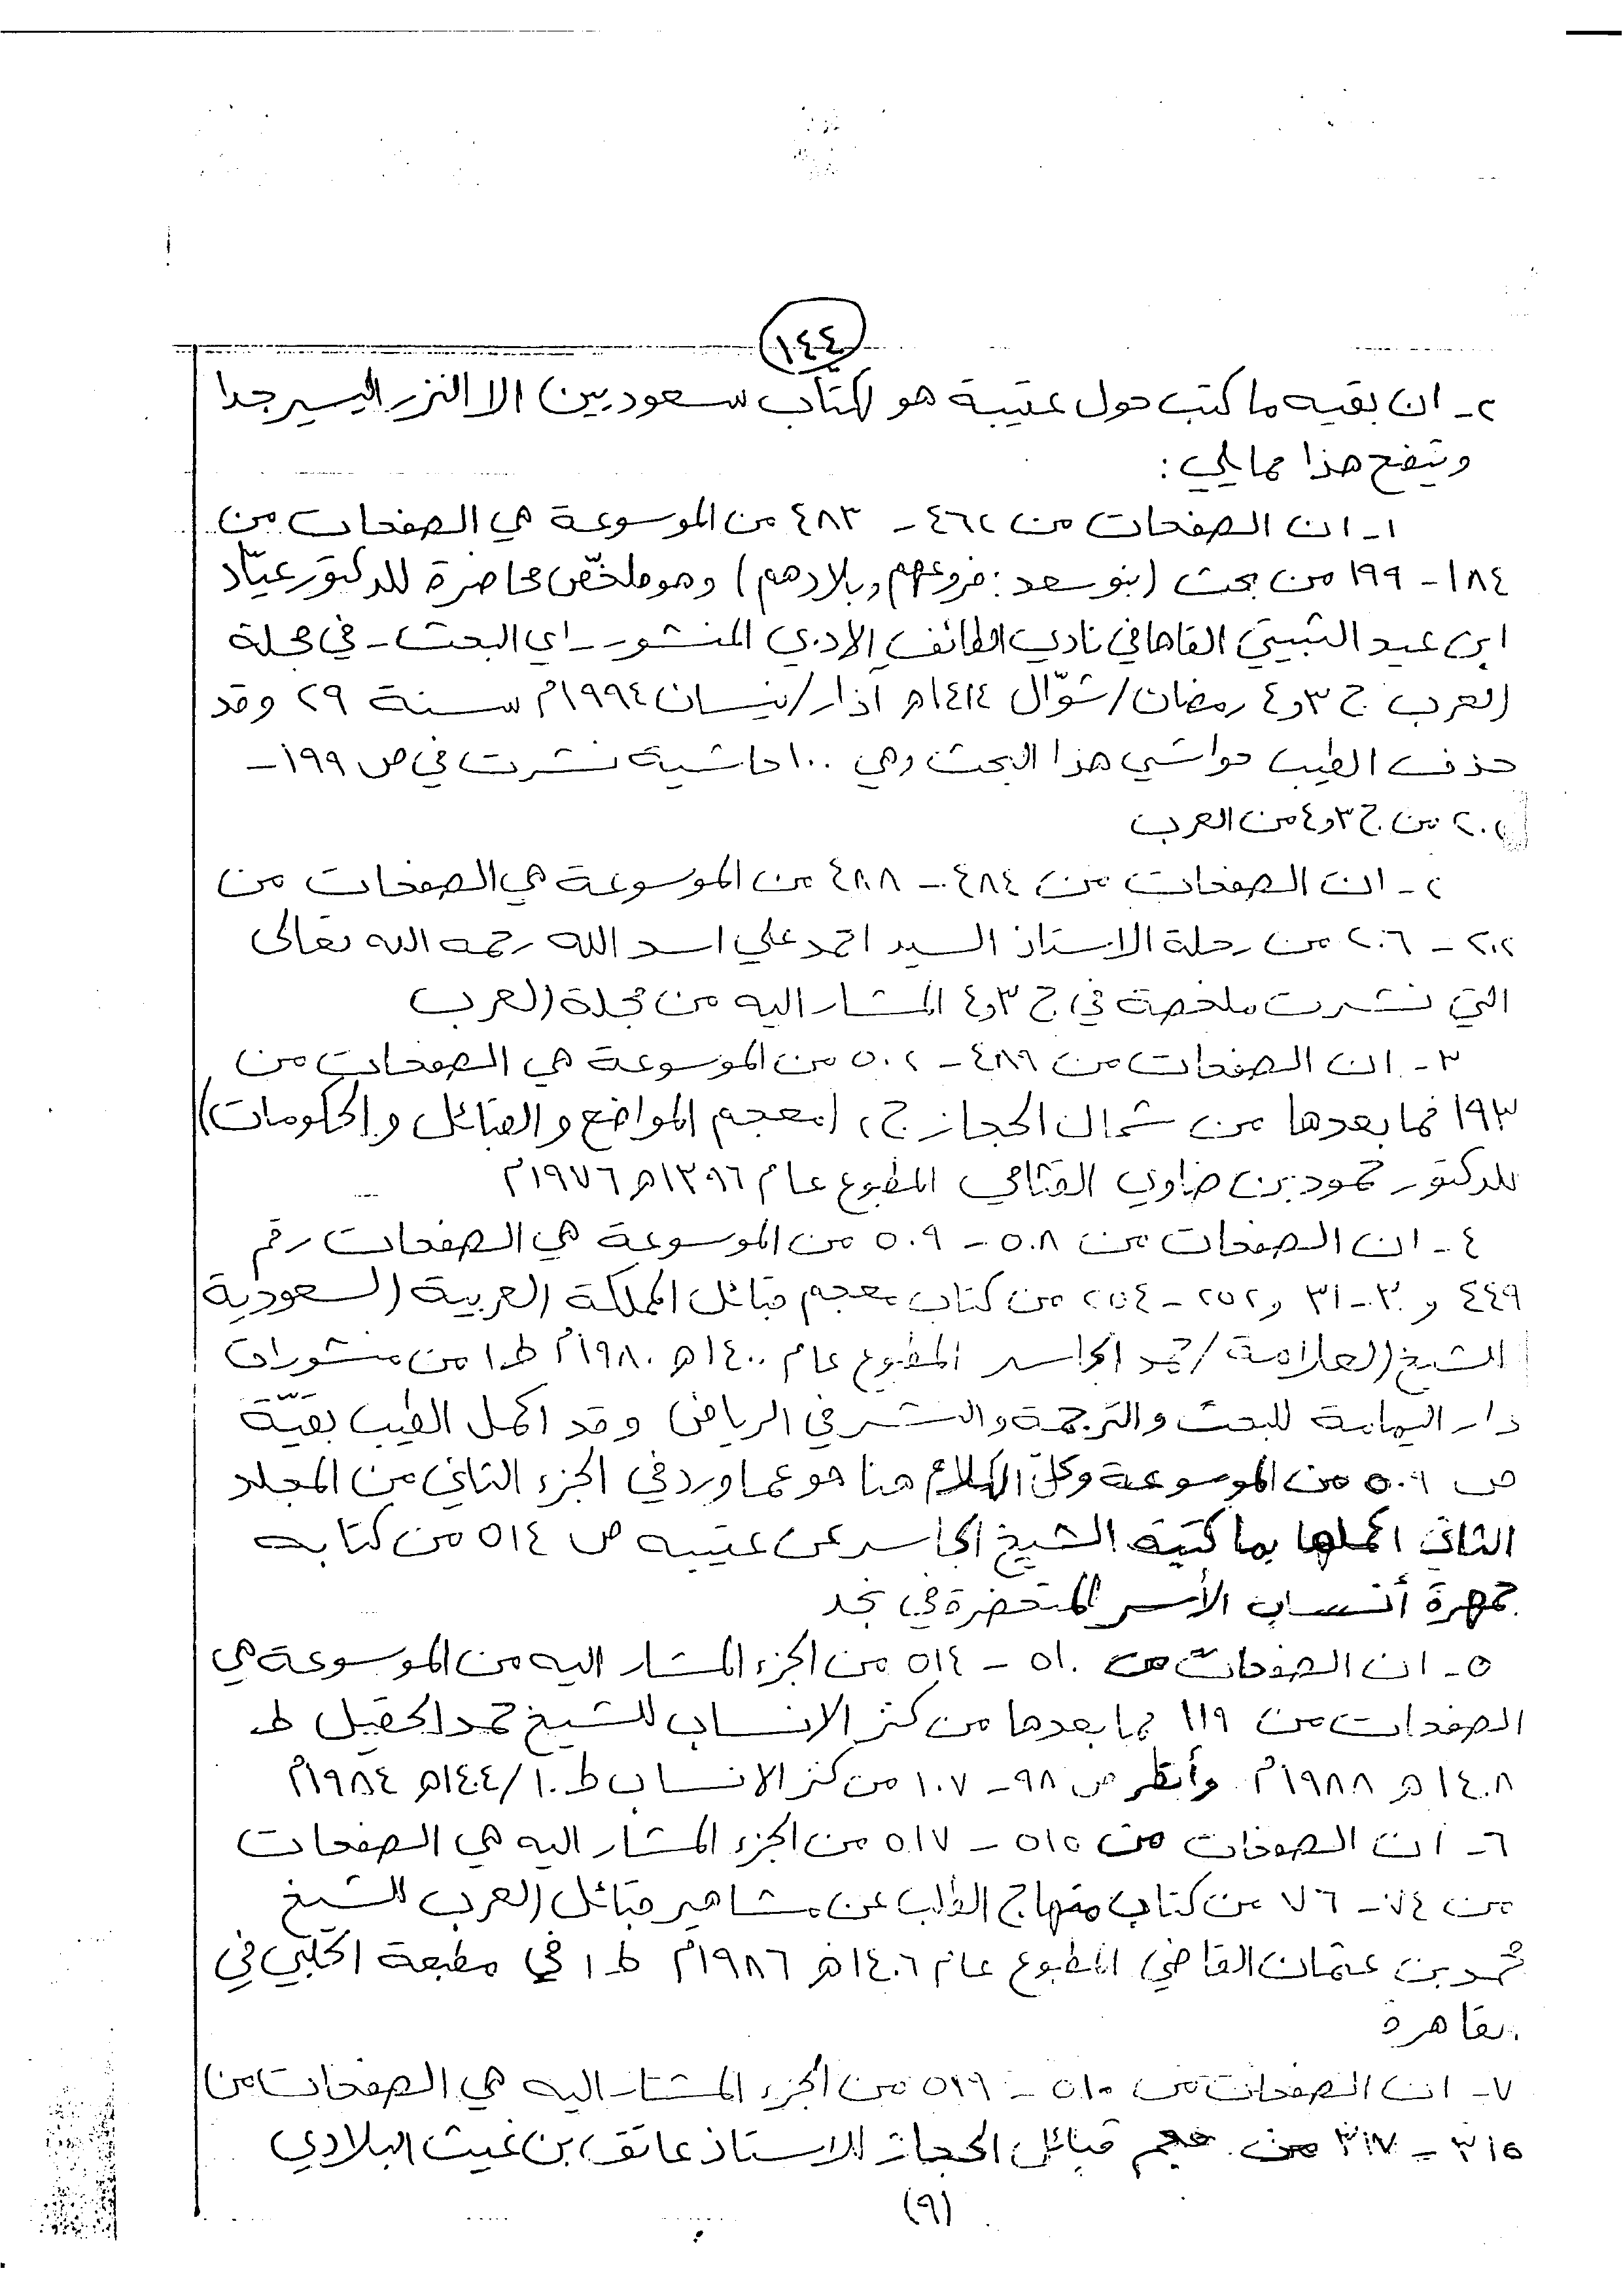 ١٤٤
٢- ان بقيه ما كتب حول عتيبة هو لكتاب سعوديين الا النزر اليسير جدا
ويتضح هذا مما يلي :
١- ان الصفحات من ٤٦٢ - ٤٨٣ من الموسوعة هي الصفحات من
١٨٤ - ١٩٩ من بحث (بنو سعد : فروعهم وبلادهم) وهو ملخّص محاضرة للدكتور عيّاد
ابن عيد الثبيتي القاها في نادي الطائف الادبي المنشور - اي البحث - في مجلة
العرب ج ٣ و٤ رمضان/شوّال ١٤١٤هـ آذار/نيسان ١٩٩٤م سنة ٢٩ وقد
حذف الطيب حواشي هذا البحث وهي ١٠٠ حاشية نشرت في ص ١٩٩ -
من ج ٣ و٤ من العرب
٢- ان الصفحات من ٤٨٤ - ٤٨٨ من الموسوعة هي الصفحات من
٢٠٢ - ٢٠٦ من رحلة الاستاذ السيد احمد علي اسد الله رحمه الله تعالى
التي نشرت ملخصة في ج ٣ و٤ المشار اليه من مجلة العرب
٣- ان الصفحات من ٤٨٩ - ٥٠٢ من الموسوعة هي الصفحات من
١٩٣ فما بعدها من شمال الحجاز ج٢ (معجم المواضع والقبائل والحكومات)
للدكتور حمود بن ضاوي القثامي المطبوع عام ١٣٩٦هـ ١٩٧٦م
٤- ان الصفحات من ٥٠٨ - ٥٠٩ من الموسوعة هي الصفحات رقم
٤٤٩ و ٣٠-٣١ و ٢٥٢ - ٢٥٤ من كتاب معجم قبائل المملكة العربية السعودية
الشيخ العلامة/حمد الجاسر المطبوع عام ١٤٠٠هـ ١٩٨٠م ط١ من منشورات
دار اليمامة للبحث والترجمة والنشر في الرياض وقد اكمل الطيب بقيّة
ص ٥٠٩ من الموسوعة وكلّ الكلام هنا هو عما ورد في الجزء الثاني من المجلد
الثاني اكملها بما كتبه الشيخ الجاسر عن عتيبه ص ٥١٤ من كتابه
جمهرة أنساب الأسر المتحضرة في نجد
٥- ان الصفحات من ٥١٠ - ٥١٤ من الجزء المشار اليه من الموسوعة هي
الصفحات من ١١٩ فما بعدها من كنز الانساب للشيخ حمد الحقيل ط
١٤٠٨هـ ١٩٨٨م وأنظر ص ٩٨ - ١٠٧ من كنز الانساب ط١٠/١٤٠٤هـ ١٩٨٤م
٦- ان الصفحات من ٥١٥ - ٥١٧ من الجزء المشار اليه هي الصفحات
من ٧٤ - ٧٦ من كتاب منهاج الطلب عن مشاهير قبائل العرب للشيخ
محمد بن عثمان القاضي المطبوع عام ١٤٠٦هـ ١٩٨٦م ط١ في مطبعة الحلبي في
القاهرة
٧- ان الصفحات من من الجزء المشار اليه هي الصفحات من
٣١٥ - ٣١٧ من معجم قبائل الحجاز للاستاذ عاتق بن غيث البلادي
(٩)